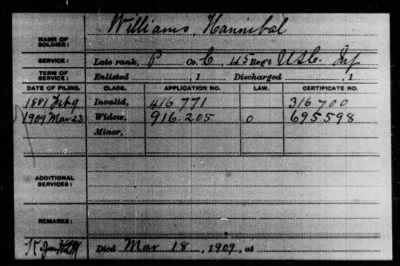 Williams, Hannibal
NAME OF SOLDIER:
SERVICE: Late rank, P Co. C, 45 Reg't U.S.C. Inf
TERM OF SERVICE: Enlisted , 1 Discharged , 1
DATE OF FILING. CLASS. APPLICATION NO. LAW. CERTIFICATE NO.
1881 Feb 9 Invalid, 416 771 316 700
1909 Mar 23 Widow, 916 205 0 695598
Minor,
ADDITIONAL SERVICES:
REMARKS:
Died Mar 18, 1909, at